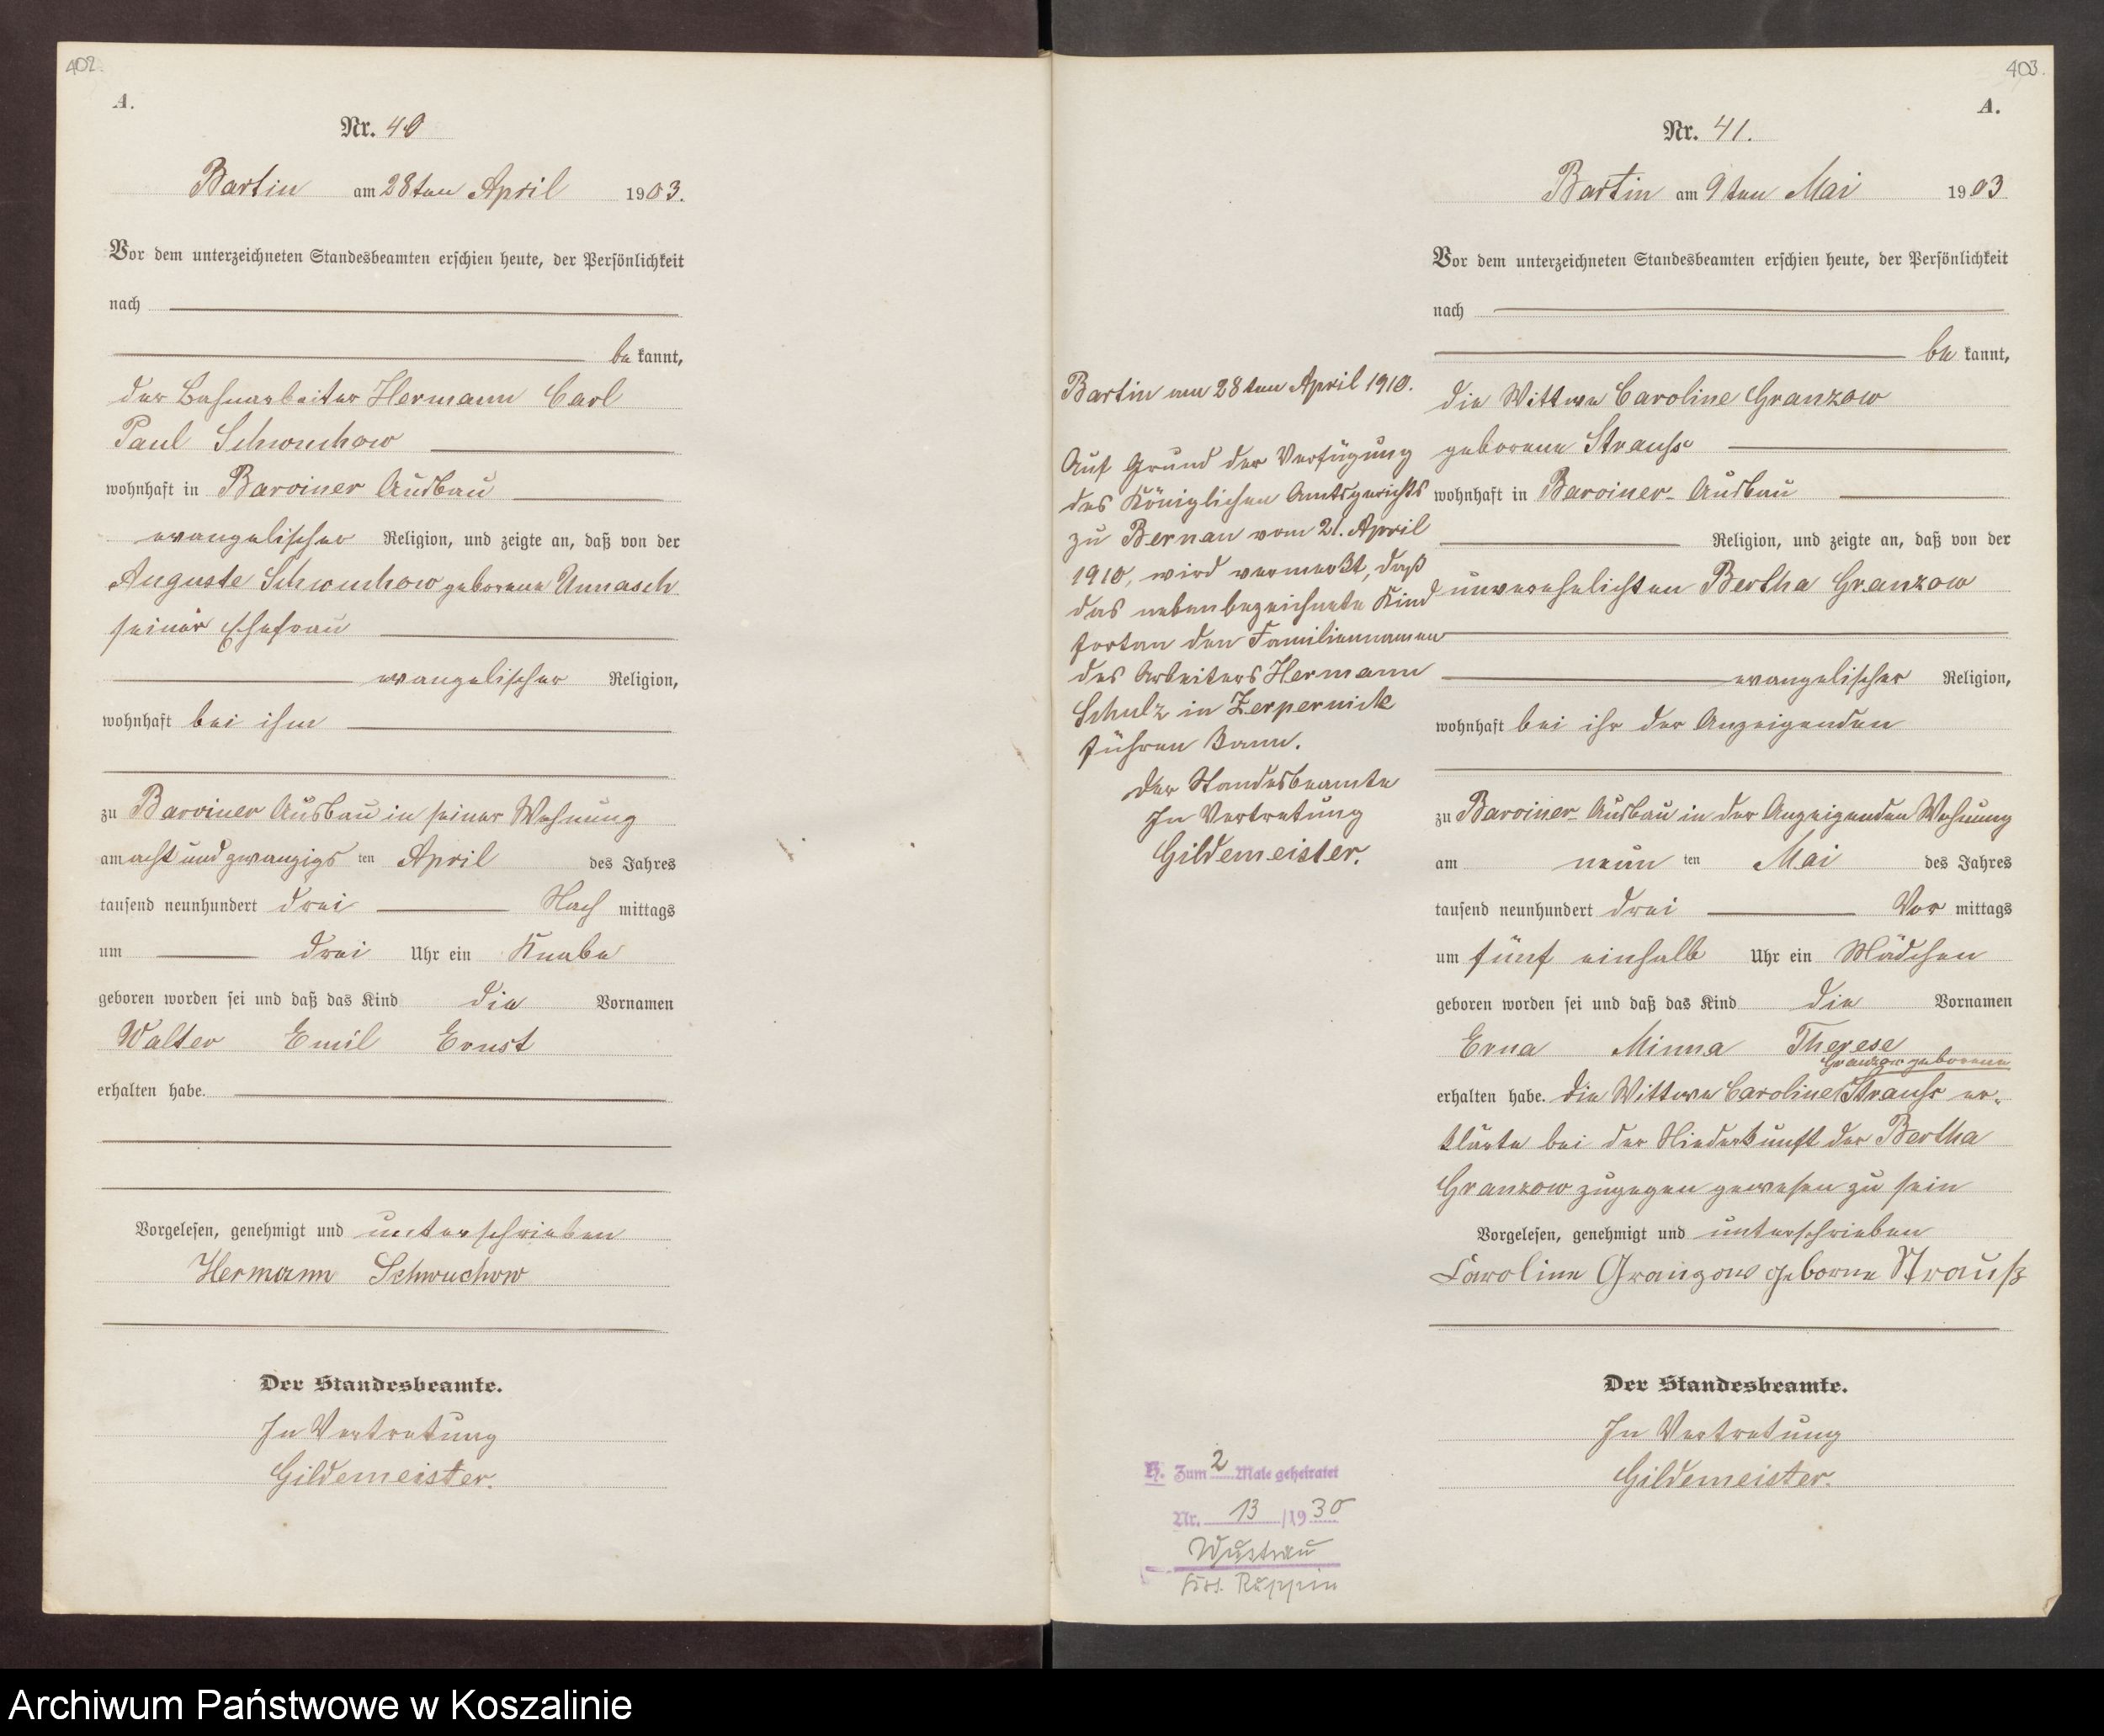 402.
A.
Nr. 40
Bartin am 28ten April 1903.
Vor dem unterzeichneten Standesbeamten erschien heute, der Persönlichkeit
nach
be kannt,
der Bahnarbeiter Hermann Carl
Paul Schwuchow
wohnhaft in Barviner Ausbau
evangelischer Religion, und zeigte an, daß von der
Auguste Schwuchow geborene Unnasch
seiner Ehefrau
evangelischer Religion,
wohnhaft bei ihm
zu Barviner Ausbau in seiner Wohnung
am acht und zwanzigsten April des Jahres
tausend neunhundert drei Nach mittags
um drei Uhr ein Knabe
geboren worden sei und daß das Kind die Vornamen
Walter Emil Ernst
erhalten habe.
Vorgelesen, genehmigt und unterschrieben
Hermann Schwuchow
Der Standesbeamte.
In Vertretung
Gildemeister.
403.
A.
Nr. 41.
Bartin am 9ten Mai 1903
Vor dem unterzeichneten Standesbeamten erschien heute, der Persönlichkeit
nach
be kannt,
die Wittwe Caroline Granzow
geborene Strauss
wohnhaft in Barviner-Ausbau
Religion, und zeigte an, daß von der
unverehelichten Bertha Granzow
evangelischer Religion,
wohnhaft bei ihr der Anzeigenden
zu Barviner-Ausbau in der Anzeigenden Wohnung
am neun ten Mai des Jahres
tausend neunhundert drei Vor mittags
um fünf einhalb Uhr ein Mädchen
geboren worden sei und daß das Kind die Vornamen
Erna Minna Therese
Granzow geborene
erhalten habe. Die Wittwe Caroline Strauss er-
klärte bei der Niederkunft der Bertha
Granzow zugegen gewesen zu sein
Vorgelesen, genehmigt und unterschrieben
Caroline Granzow geborne Strauß
Der Standesbeamte.
In Vertretung
Gildemeister.
Bartin am 28ten April 1910.
Auf Grund der Verfügung
des Königlichen Amtsgerichts
zu Bernau vom 21. April
1910, wird vermerkt, daß
das nebenbezeichnete Kind
fortan den Familiennamen
des Arbeiters Hermann
Schulz in Zerpernick
führen kann.
Der Standesbeamte
In Vertretung
Gildemeister.
H. Zum 2 Male geheiratet
Nr. 13 /1930
Wustrau
Krs. Ruppin
Archiwum Państwowe w Koszalinie